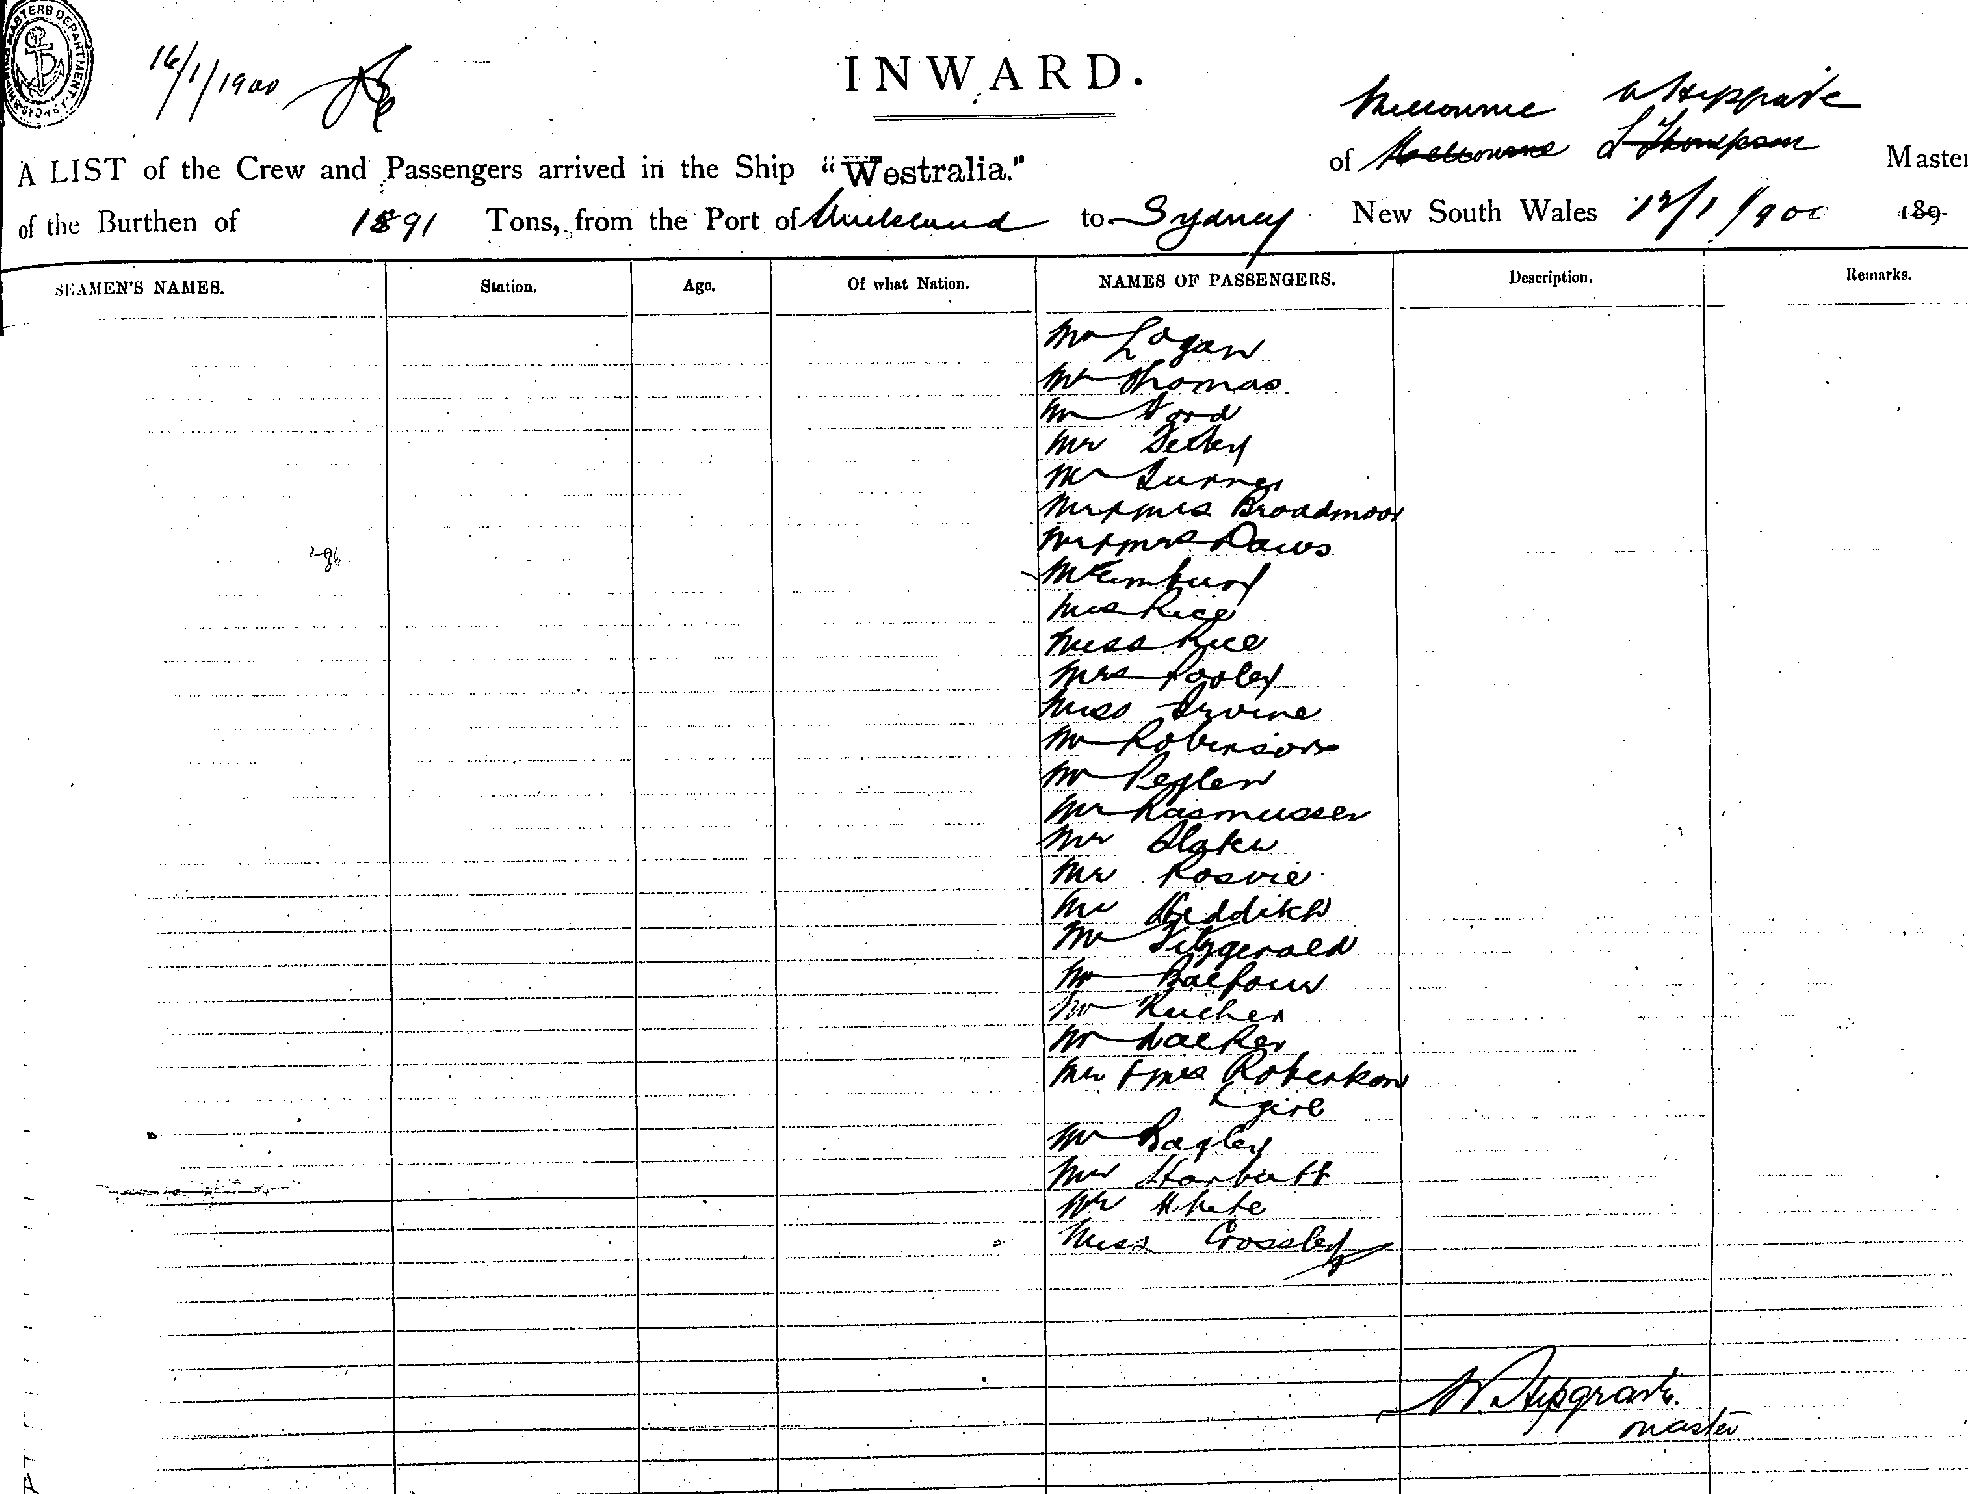 16/1/1900
INWARD.
Melbourne W Hipgrave
A LIST of the Crew and Passengers arrived in the Ship "Westralia." of Melbourne L Thompson Master
of the Burthen of 1891 Tons, from the Port of Auckland to Sydney New South Wales 12/1/900 189
SEAMEN'S NAMES. Station. Age. Of what Nation. NAMES OF PASSENGERS. Description. Remarks.
Mr Logan
Mr Thomas
Mr Ford
Mr
Mr Turner
Mr & Mrs Broadmoor
Mr & Mrs Daws
Mr Embury
Mrs Rice
Miss Rice
Mrs Pooley
Miss Irvine
Mr Robinson
Mr
Mr Rasmussen
Mr Blake
Mr Rosvie
Mr
Mr Fitzgerald
Mr Balfour
Mr
Mr
Mr & Mrs Robertson
& girl
Mr Bagley
Mr Harbutt
Mr White
Miss Crossley
W. Hipgrave
master